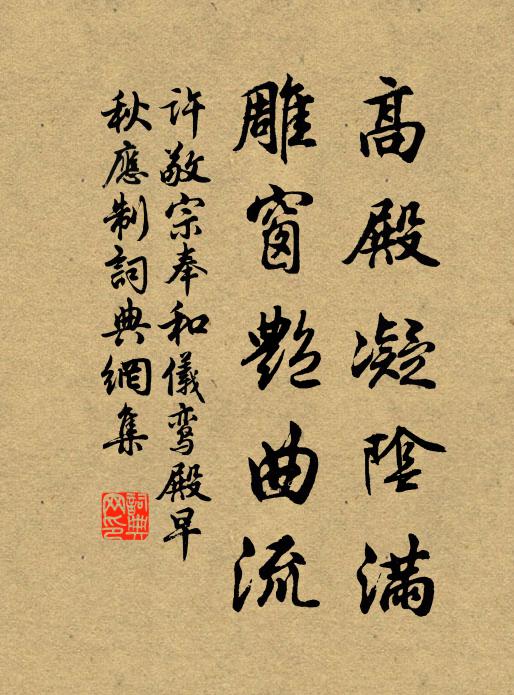 高殿凝陰滿
雕窗艷曲流
許敬宗奉和儀鸞殿早
秋應制詞典網集
詞典網印